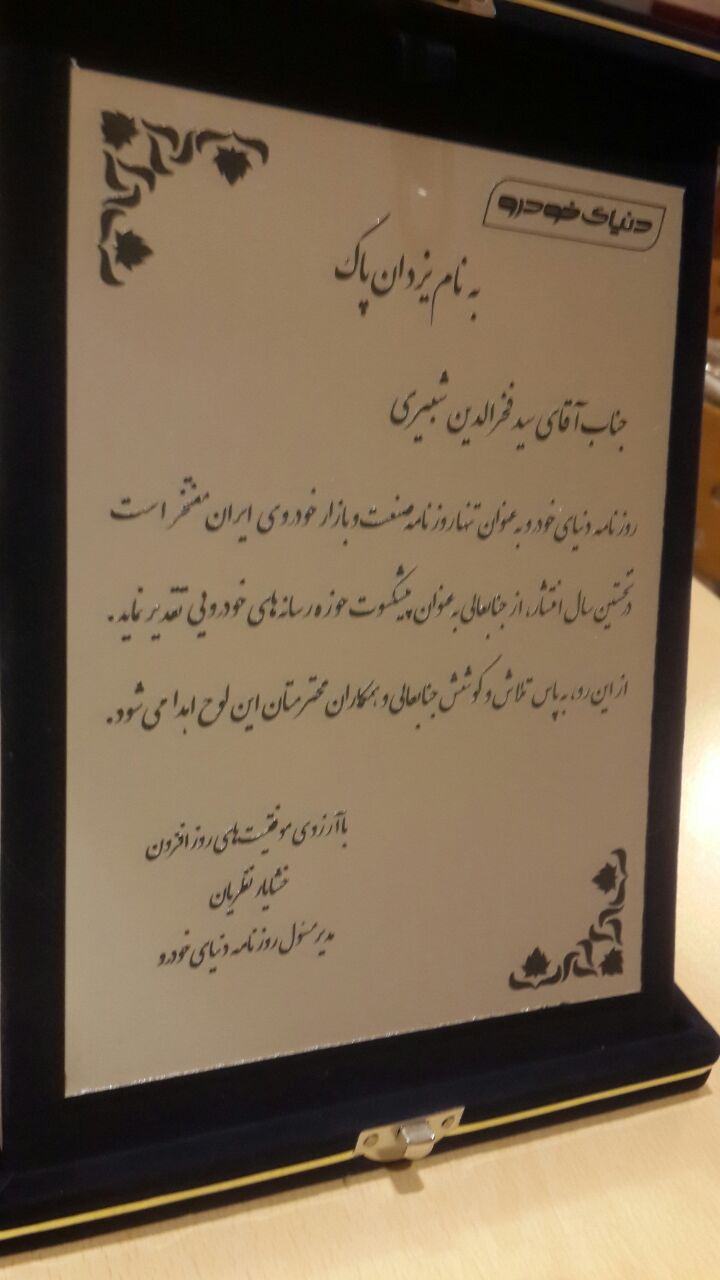 دنیای خودرو
به نام یزدان پاک
جناب آقای سید فخرالدین شبیری
روزنامه دنیای خودرو به عنوان تنها روزنامه صنعت و بازار خودروی ایران مفتخر است
در نخستین سال انتشار، از جنابعالی به عنوان پیشکسوت حوزه رسانه های خودرویی تقدیر نماید.
از این رو، به پاس تلاش و کوشش جنابعالی و همکاران محترمتان این لوح اهدا می شود.
با آرزوی موفقیت های روز افزون
خشایار نظریان
مدیر مسئول روزنامه دنیای خودرو